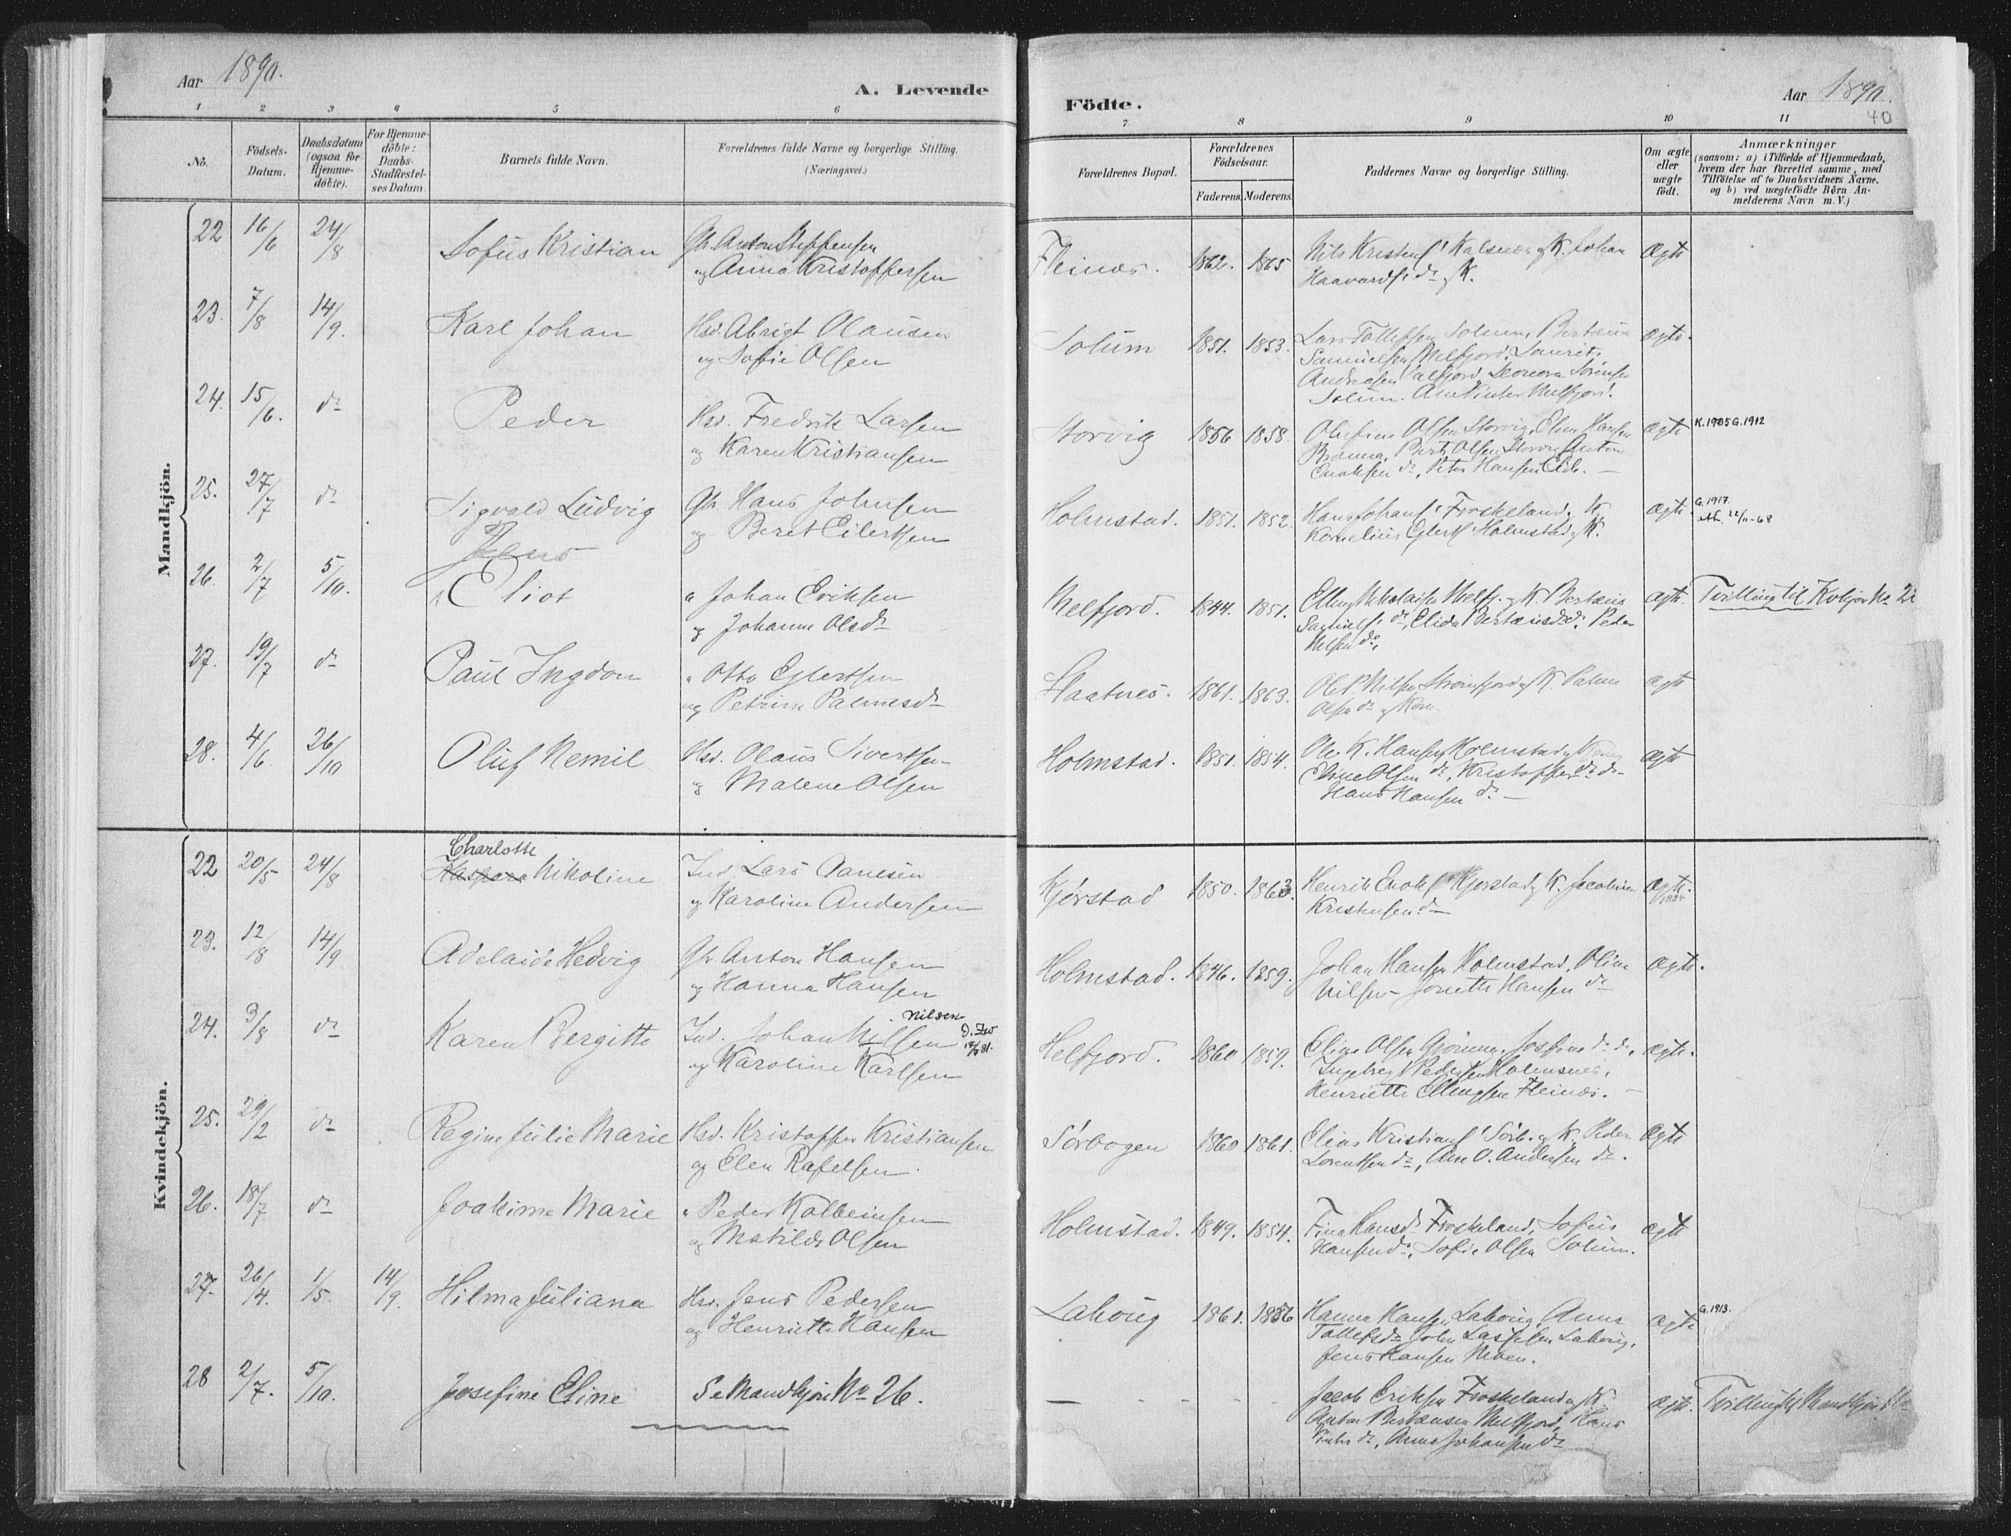 Aar 1890.
A. Levende
Födte.
Aar 1890.
40
1 2 3 4 5 6 7 8 9 10 11
No.
Födsels-Datum.
Daabsdatum (ogsaa for Hjemme-döbte).
For Hjemme-döbte: Daabs-Stadfæstelses Datum.
Barnets fulde Navn.
Forældrenes fulde Navne og borgerlige Stilling. (Næringsvei.)
Forældrenes Bopæl.
Forældrenes Födselsaar.
Faderens. Moderens.
Faddernes Navne og borgerlige Stilling.
Om ægte eller uægte født.
Anmærkninger
(saasom: a) i Tilfælde af Hjemmedaab,
hvem der har forrettet samme, med
Tilföielse af to Daabsvidners Navne.
og b) ved uægtefödte Börn An-
melderens Navn m. V.)
Mandkjön.
22 16/6 24/8 Sofus Kristian Gbr. Anton Steffensen
og Anna Kristoffersen
Fleinæs. 1862. 1865 Nils Kristens. Kalsnes og K. Johan
Haavards. do og K.
Ægte
23. 7/8 14/9. Karl Johan Hsd. Abrigt Olausen
og Sofie Olsen
Solum 1851. 1853. Lars Tollefsen Solum,
Samuelsen Melfjord, Laurits
Andreasen Leonora Sørensen
Solum. Melfjord.
ægte.
24. 15/6. do Peder Hsd. Fredrik Larsen
og Karen Kristiansen
Storvig 1856 1858. Olufine Olsen Storvig, Elen Hansen
Berit Olsen Storvig, Anton
Enoksen do, Peter Hansen
ægte K. 1905 G. 1912
25. 27/7 do Sigvald Ludvig Gbr Hans Johnsen
og Beret Eilertsen
Holmstad. 1851. 1852. Hans Johans. Froskeland, K
Kornelius Eilerts. Holmstad og K.
ægte. G. 1917.
22/11-68
26. 2/7 5/10. Jens
Eliot " Johan Eriksen
og Johanne Olsdr
Melfjord. 1844. 1851. Elling Nikolaisen Melfj. og K. Bertæus
Samuels. do, Elida Bertæusd. do, Peder
Nilsen do,
ægte. Tvilling til Kvkjøn No 28
27. 19/7 do Paul Ingdon " Otto Eilertsen
og Petrine Palmesdr
Slaatnes. 1861. 1863. Ole P. Nilsen Strømfjord og K. Palme
Olsen do og Kone
ægte
28. 4/6 26/10 Oluf Nemil Hsd. Olaus Sivertsen
og Malene Olsen
Holmstad. 1851. 1854. Ole K. Hansen Holmstad og Kone,
Eline Olsen do, Kristoffer do do
Hans Hansen do
ægte
Kvindekjön.
22 20/5 24/8 Charlotte
Kaspara Nikoline Ind. Lars Aanesen
og Karoline Andersen
Kjørstad 1850. 1863. Henrik Enoks. Kjørstad og K. Jacobine
Kristensen do
ægte.
23. 12/8 14/9 Adelaide Hedvig Gbr Anton Hansen
og Hanna Hansen
Holmstad. 1846. 1859. Johan Hansen Holmstad, Oline
Nilsen Jonette Hansen do
ægte.
24. 3/8 do Karen Bergitte Ind. Johan Nilsen Nilsen
og Karoline Karlsen
Melfjord. 1860 1859. Eline Olsen Gjønnes, Josefine do do,
Ingebregt Pedersen Holmsnes,
Henriette Ellingsen Fleinæs.
ægte.
25. 29/2 do Regine Julie Marie Hsd. Kristoffer Kristiansen
og Elen Rafelsen.
Sørbogen 1860 1861. Elias Kristians. Sørb. og K. Peder
Lorentsen do, Ane O. Andersen do.
ægte
26. 18/7 do Joakime Marie " Peder Kolbeinsen
og Matilde Olsen
Holmstad. 1849. 1854. Fina Hansdr Froskeland, Sofus
Hansen do, Sofie Olsen Solum.
ægte
27. 26/4. 1/5. 14/9. Hilma Juliana Hsd. Jens Pedersen
og Henriette Hansen
Lahaug 1861. 1856 Hanna Hansen Lahaug, Anna
Tollefsdr John Lahaug,
Jens Hansen
ægte G. 1913.
28 2/7. 5/10. Josefine Eline Se Mandkjøn No 26.
Jacob Eriksen Froskeland og K.
Anton Bertæusen Melfjord, Hans
do, Anna Johansen do
ægte. Tvilling til Mandkjøn No